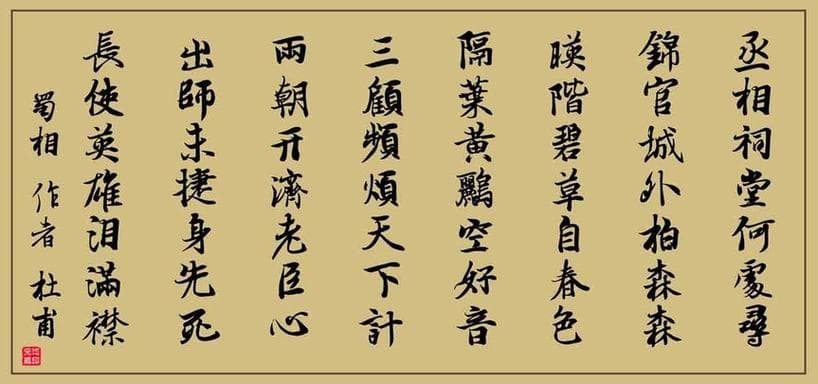 丞相祠堂何處尋
錦官城外柏森森
暎階碧草自春色
隔葉黄鸝空好音
三顧頻煩天下計
兩朝开濟老臣心
出師未捷身先死
長使英雄泪滿襟
蜀相 作者 杜甫